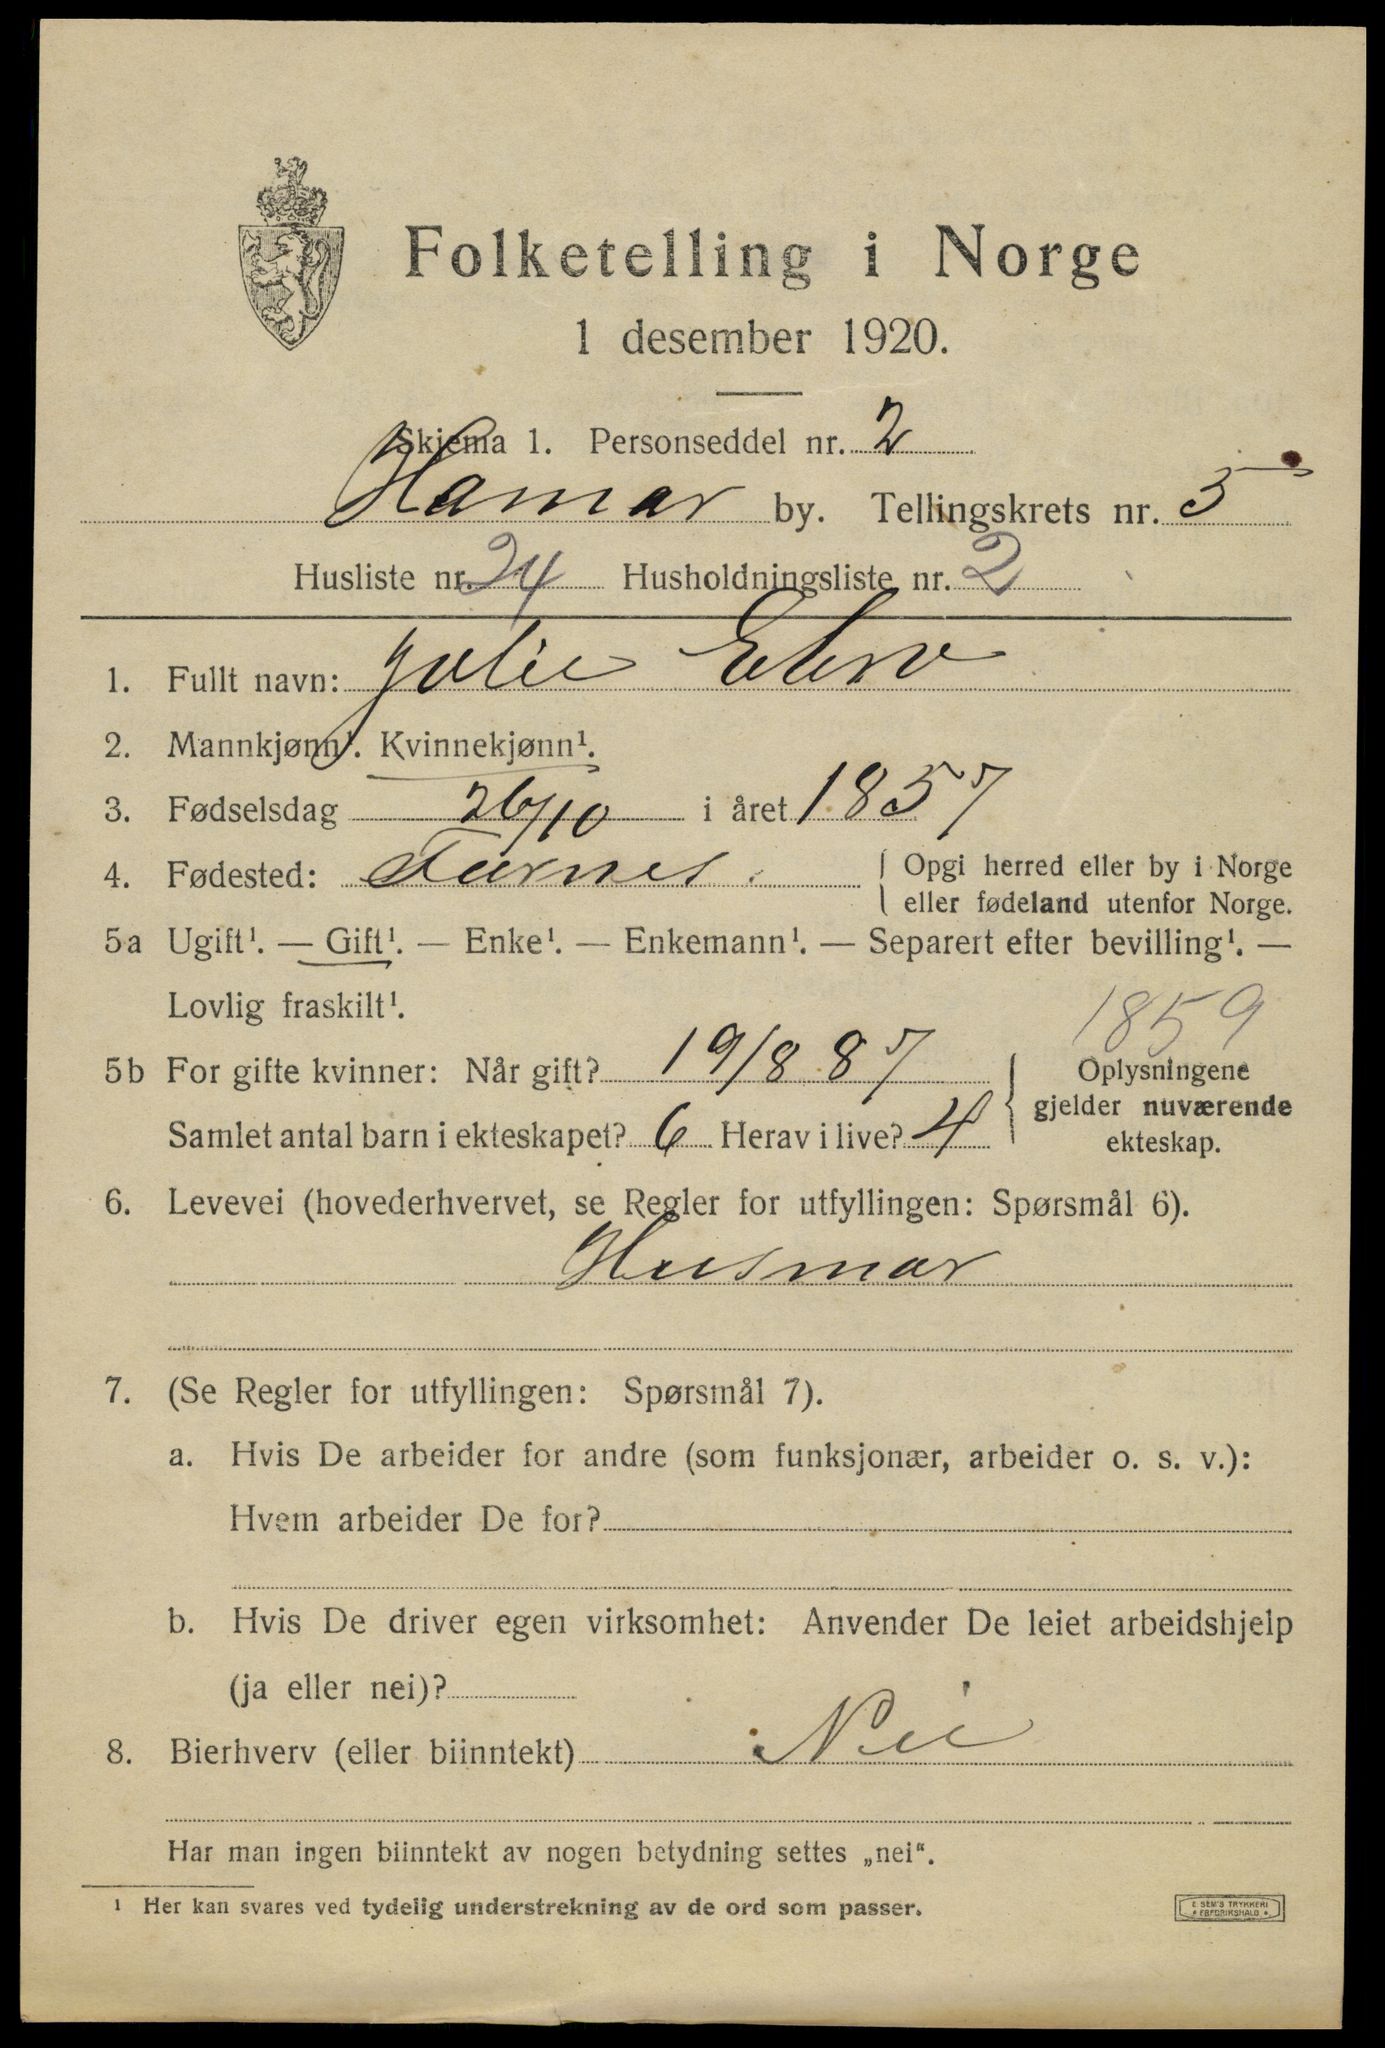 Folketelling i Norge
1 desember 1920.
Skjema 1. Personseddel nr. 2
Hamar by. Tellingskrets nr. 5
Husliste nr. 24 Husholdningsliste nr. 2
1. Fullt navn: Julie
2. Mannkjønn¹. Kvinnekjønn¹.
3. Fødselsdag 26/10 i året 1857
4. Fødested: Furnes. Opgi herred eller by i Norge
eller fødeland utenfor Norge.
5a Ugift¹. — Gift¹. — Enke¹. — Enkemann¹. — Separert efter bevilling¹. —
Lovlig fraskilt¹.
1859
5b For gifte kvinner: Når gift? 19/8 87
Samlet antal barn i ekteskapet? 6 Herav i live? 4
Oplysningene
gjelder nuværende
ekteskap.
6. Levevei (hovederhvervet, se Regler for utfyllingen: Spørsmål 6).
Husmor
7. (Se Regler for utfyllingen: Spørsmål 7).
a. Hvis De arbeider for andre (som funksjonær, arbeider o. s. v.):
Hvem arbeider De for?
b. Hvis De driver egen virksomhet: Anvender De leiet arbeidshjelp
(ja eller nei)?
8. Bierhverv (eller biinntekt) Nei
Har man ingen biinntekt av nogen betydning settes „nei“.
¹ Her kan svares ved tydelig understrekning av de ord som passer.
E. SEM'S TRYKKERI